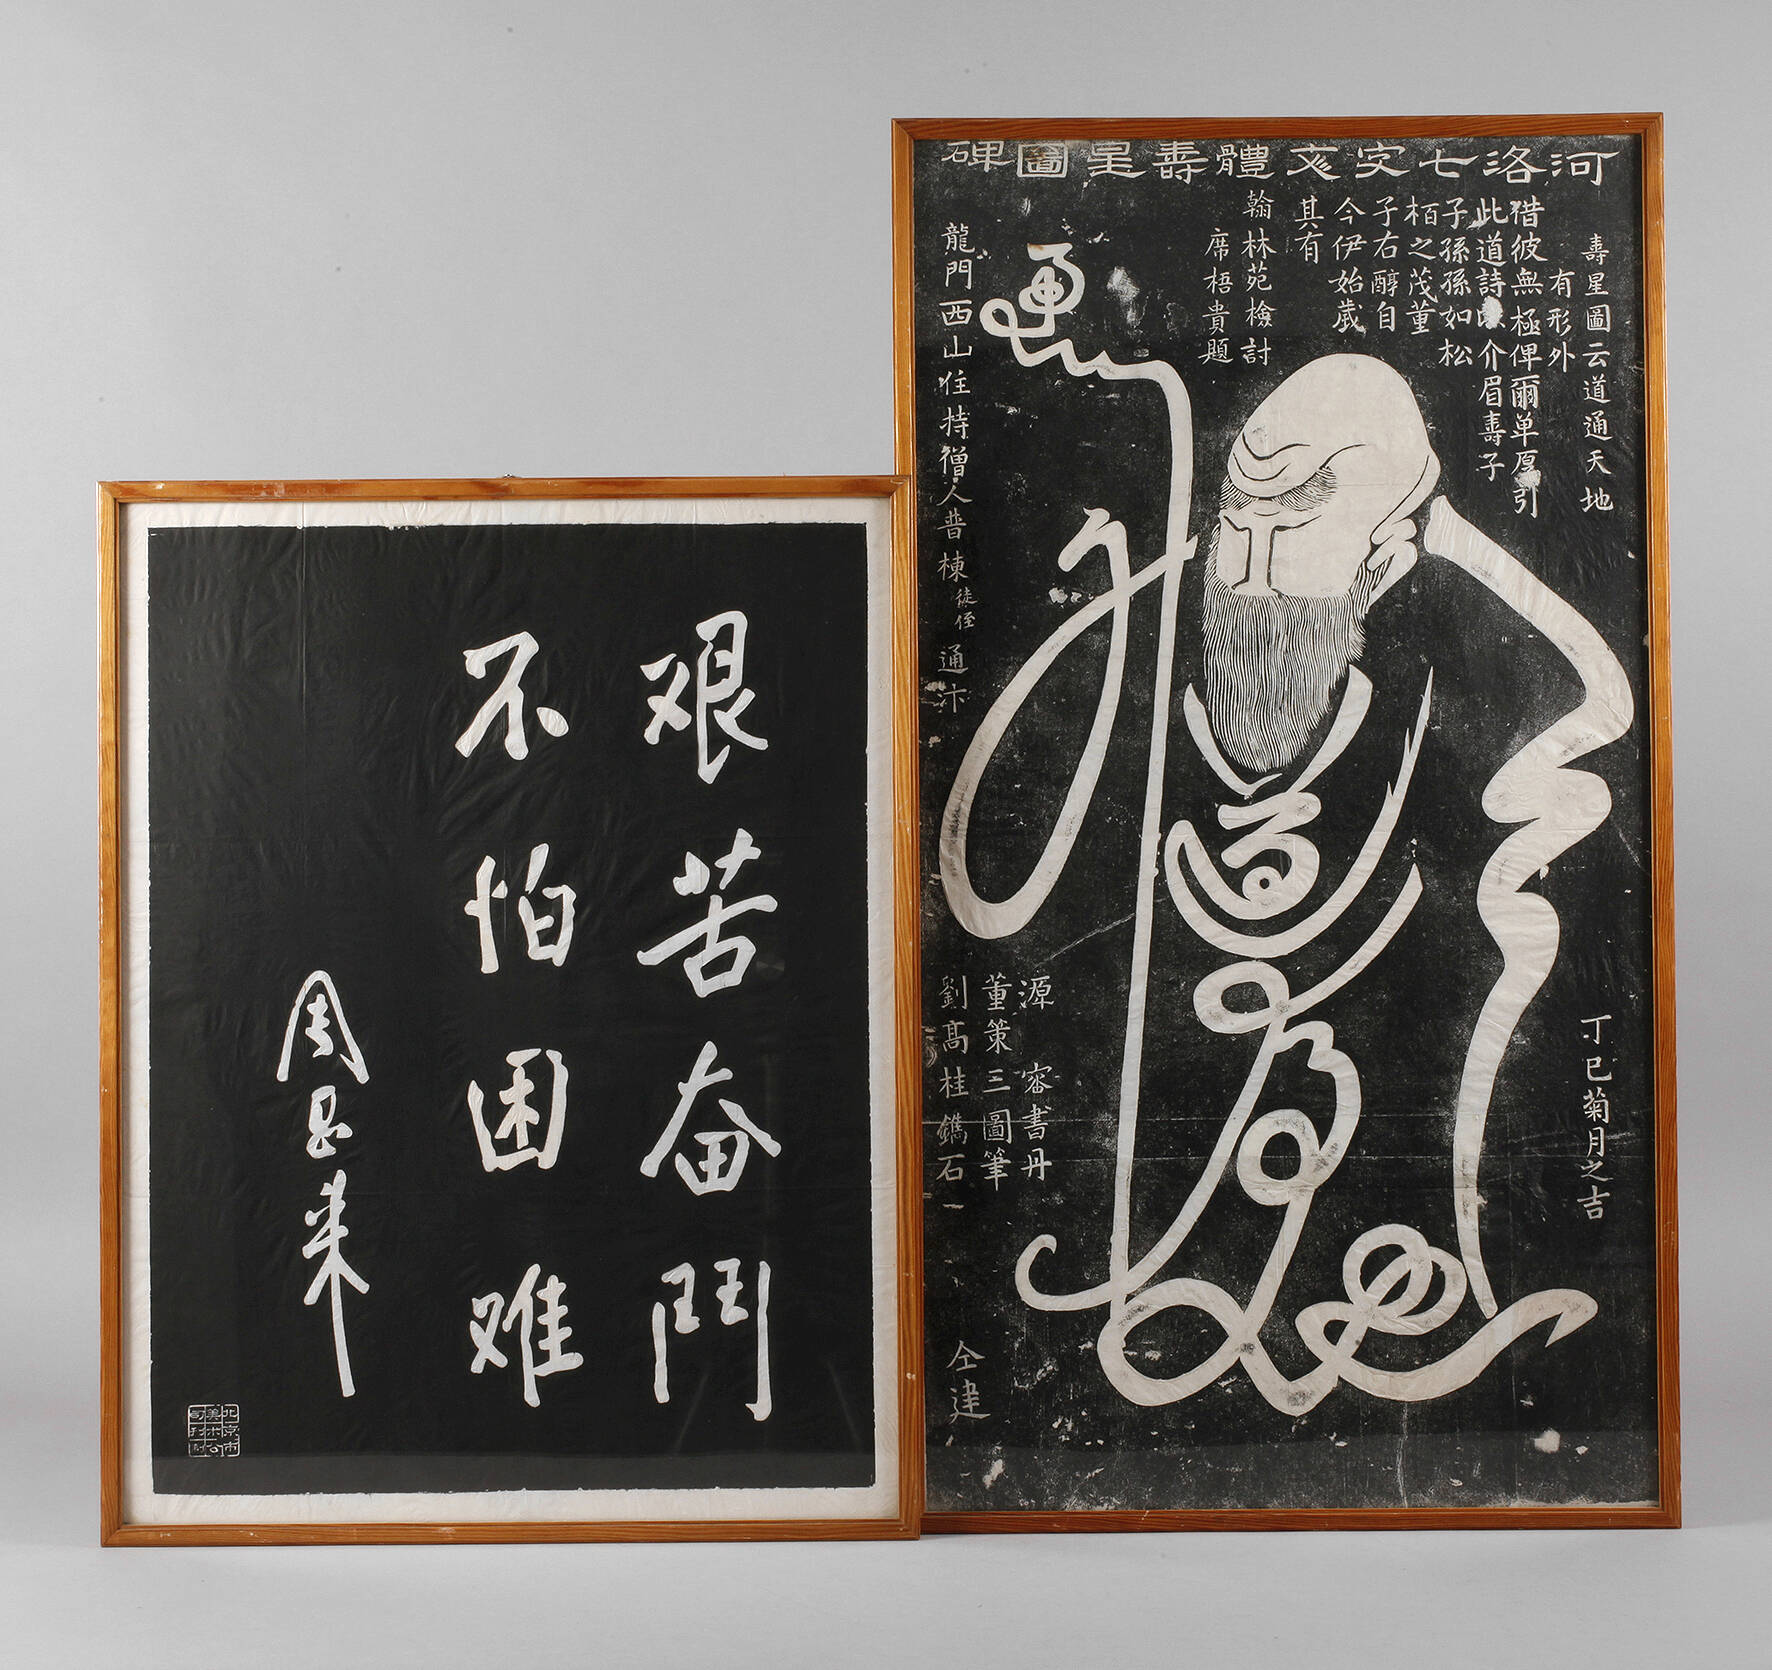 艰苦奋鬥
不怕困难
周恩来
北京市
美术公
司
河洛七
體壽星圖碑
壽星圖云道通天地
有形外
猎彼無極俾爾单厚引
此道詩以介眉壽子
子孫孫如松
栢之茂董
子右醇自
今伊始歲
其有
翰林苑檢討
席梧貴題
龍門西山住持僧人普棟徒侄通汴
源 審書丹
董策三圖筆
劉高桂鐫石
仝建
丁巳菊月之吉